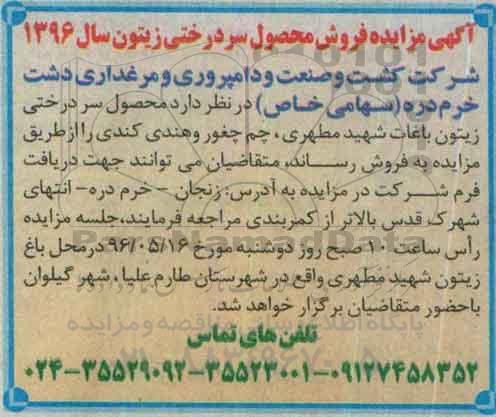 آگهی مزایده فروش محصول سردرختی زیتون سال ۱۳۹۶
شرکت کشت و صنعت و دامپروری و مرغداری دشت
خرم دره (سهامی خاص) در نظر دارد محصول سردرختی
زیتون باغات شهید مطهری، چم چغور و هندی کندی را از طریق
مزایده به فروش رساند، متقاضیان می توانند جهت دریافت
فرم شرکت در مزایده به آدرس: زنجان - خرم دره - انتهای
شهرک قدس بالاتر از کمربندی مراجعه فرمایند، جلسه مزایده
رأس ساعت ۱۰ صبح روز دوشنبه مورخ ۹۶/۰۵/۱۶ در محل باغ
زیتون شهید مطهری واقع در شهرستان طارم علیا، شهر گیلوان
باحضور متقاضیان برگزار خواهد شد.
تلفن های تماس
۰۲۴-۳۵۵۲۹۰۹۲-۳۵۵۲۳۰۰۱-۰۹۱۲۷۴۵۸۳۵۲